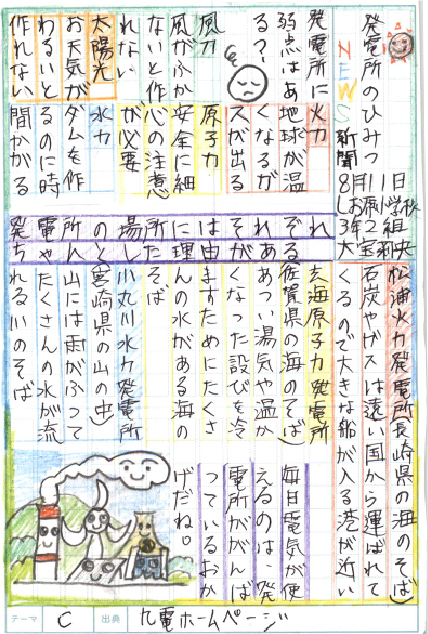 発電所のひみつ
NEWS
新聞
8月11日
しお原小学校
3年2組
発電所に
弱点はあ
る?
火力
地球が温
くなるガ
スが出る
風力
風がふか
ないと作
れない
原子力
安全に細
心の注意
が必要
太陽光
お天気が
わるいと
作れない
水力
ダムを作
るのに時
間がかる
発電所の場所にはそれぞれ
ちゃんとした理由がある
松浦火力発電所(長崎県の海のそば)
石炭やガスは遠い国から運ばれて
くるので大きな船が入る港が近い
玄海原子力発電所
(佐賀県の海のそば)
あつい湯気や温か
くなった設びを冷
ますためにたくさ
んの水がある海の
そば
小丸川水力発電所
(宮崎県の山の中)
山には雨がふって
たくさんの水が流
れる川のそば
毎日電気が使
えるのは、発
電所ががんば
っているおか
げだね。
テーマ C 出典 九電ホームページ